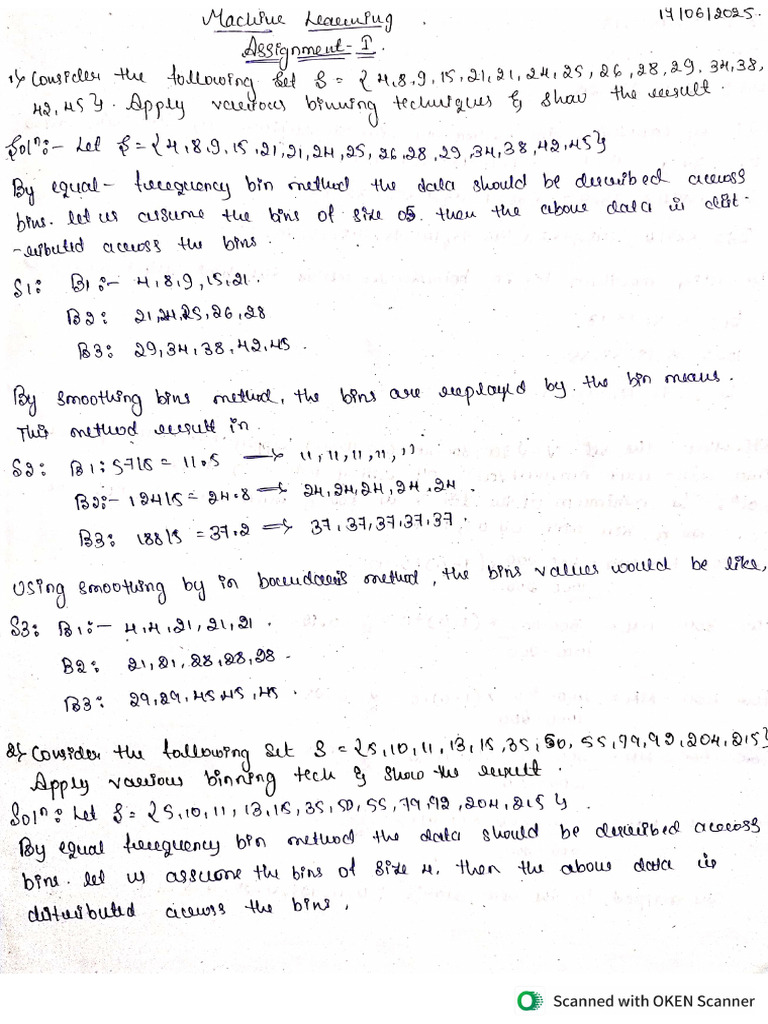 Machine Learning.
17/06/2025.
Assignment-I.
1) Consider the following set S = {4,8,9,15,21,21,24,25,26,28,29,34,38,
42,45}. Apply various binning techniques & show the result.
Soln:- Let S = {4,8,9,15,21,21,24,25,26,28,29,34,38,42,45}
By equal-frequency bin method the data should be described across
bins. let us assume the bins of size 05. then the above data is dist-
-ributed across the bins.
S1: B1:- 4,8,9,15,21.
B2: 21,24,25,26,28
B3: 29,34,38,42,45.
By smoothing bins method, the bins are replayed by the bin means.
This method result in.
S2: B1: 57/5 = 11.5 → 11,11,11,11,11
B2:- 124/5 = 24.8 → 24,24,24,24,24.
B3: 188/5 = 37.2 → 37,37,37,37,37.
Using smoothing by in boundaries method, the bins values would be like,
S3: B1:- 4,4,21,21,21.
B2: 21,21,28,28,28.
B3: 29,29,45,45,45.
2) Consider the following set S = {5,10,11,13,15,35,50,55,79,92,204,215}
Apply various binning tech & show the result.
Soln: Let S = {5,10,11,13,15,35,50,55,79,92,204,215}.
By equal frequency bin method the data should be described across
bins. let us assume the bins of size 4. then the above data is
distributed across the bins,
Scanned with OKEN Scanner